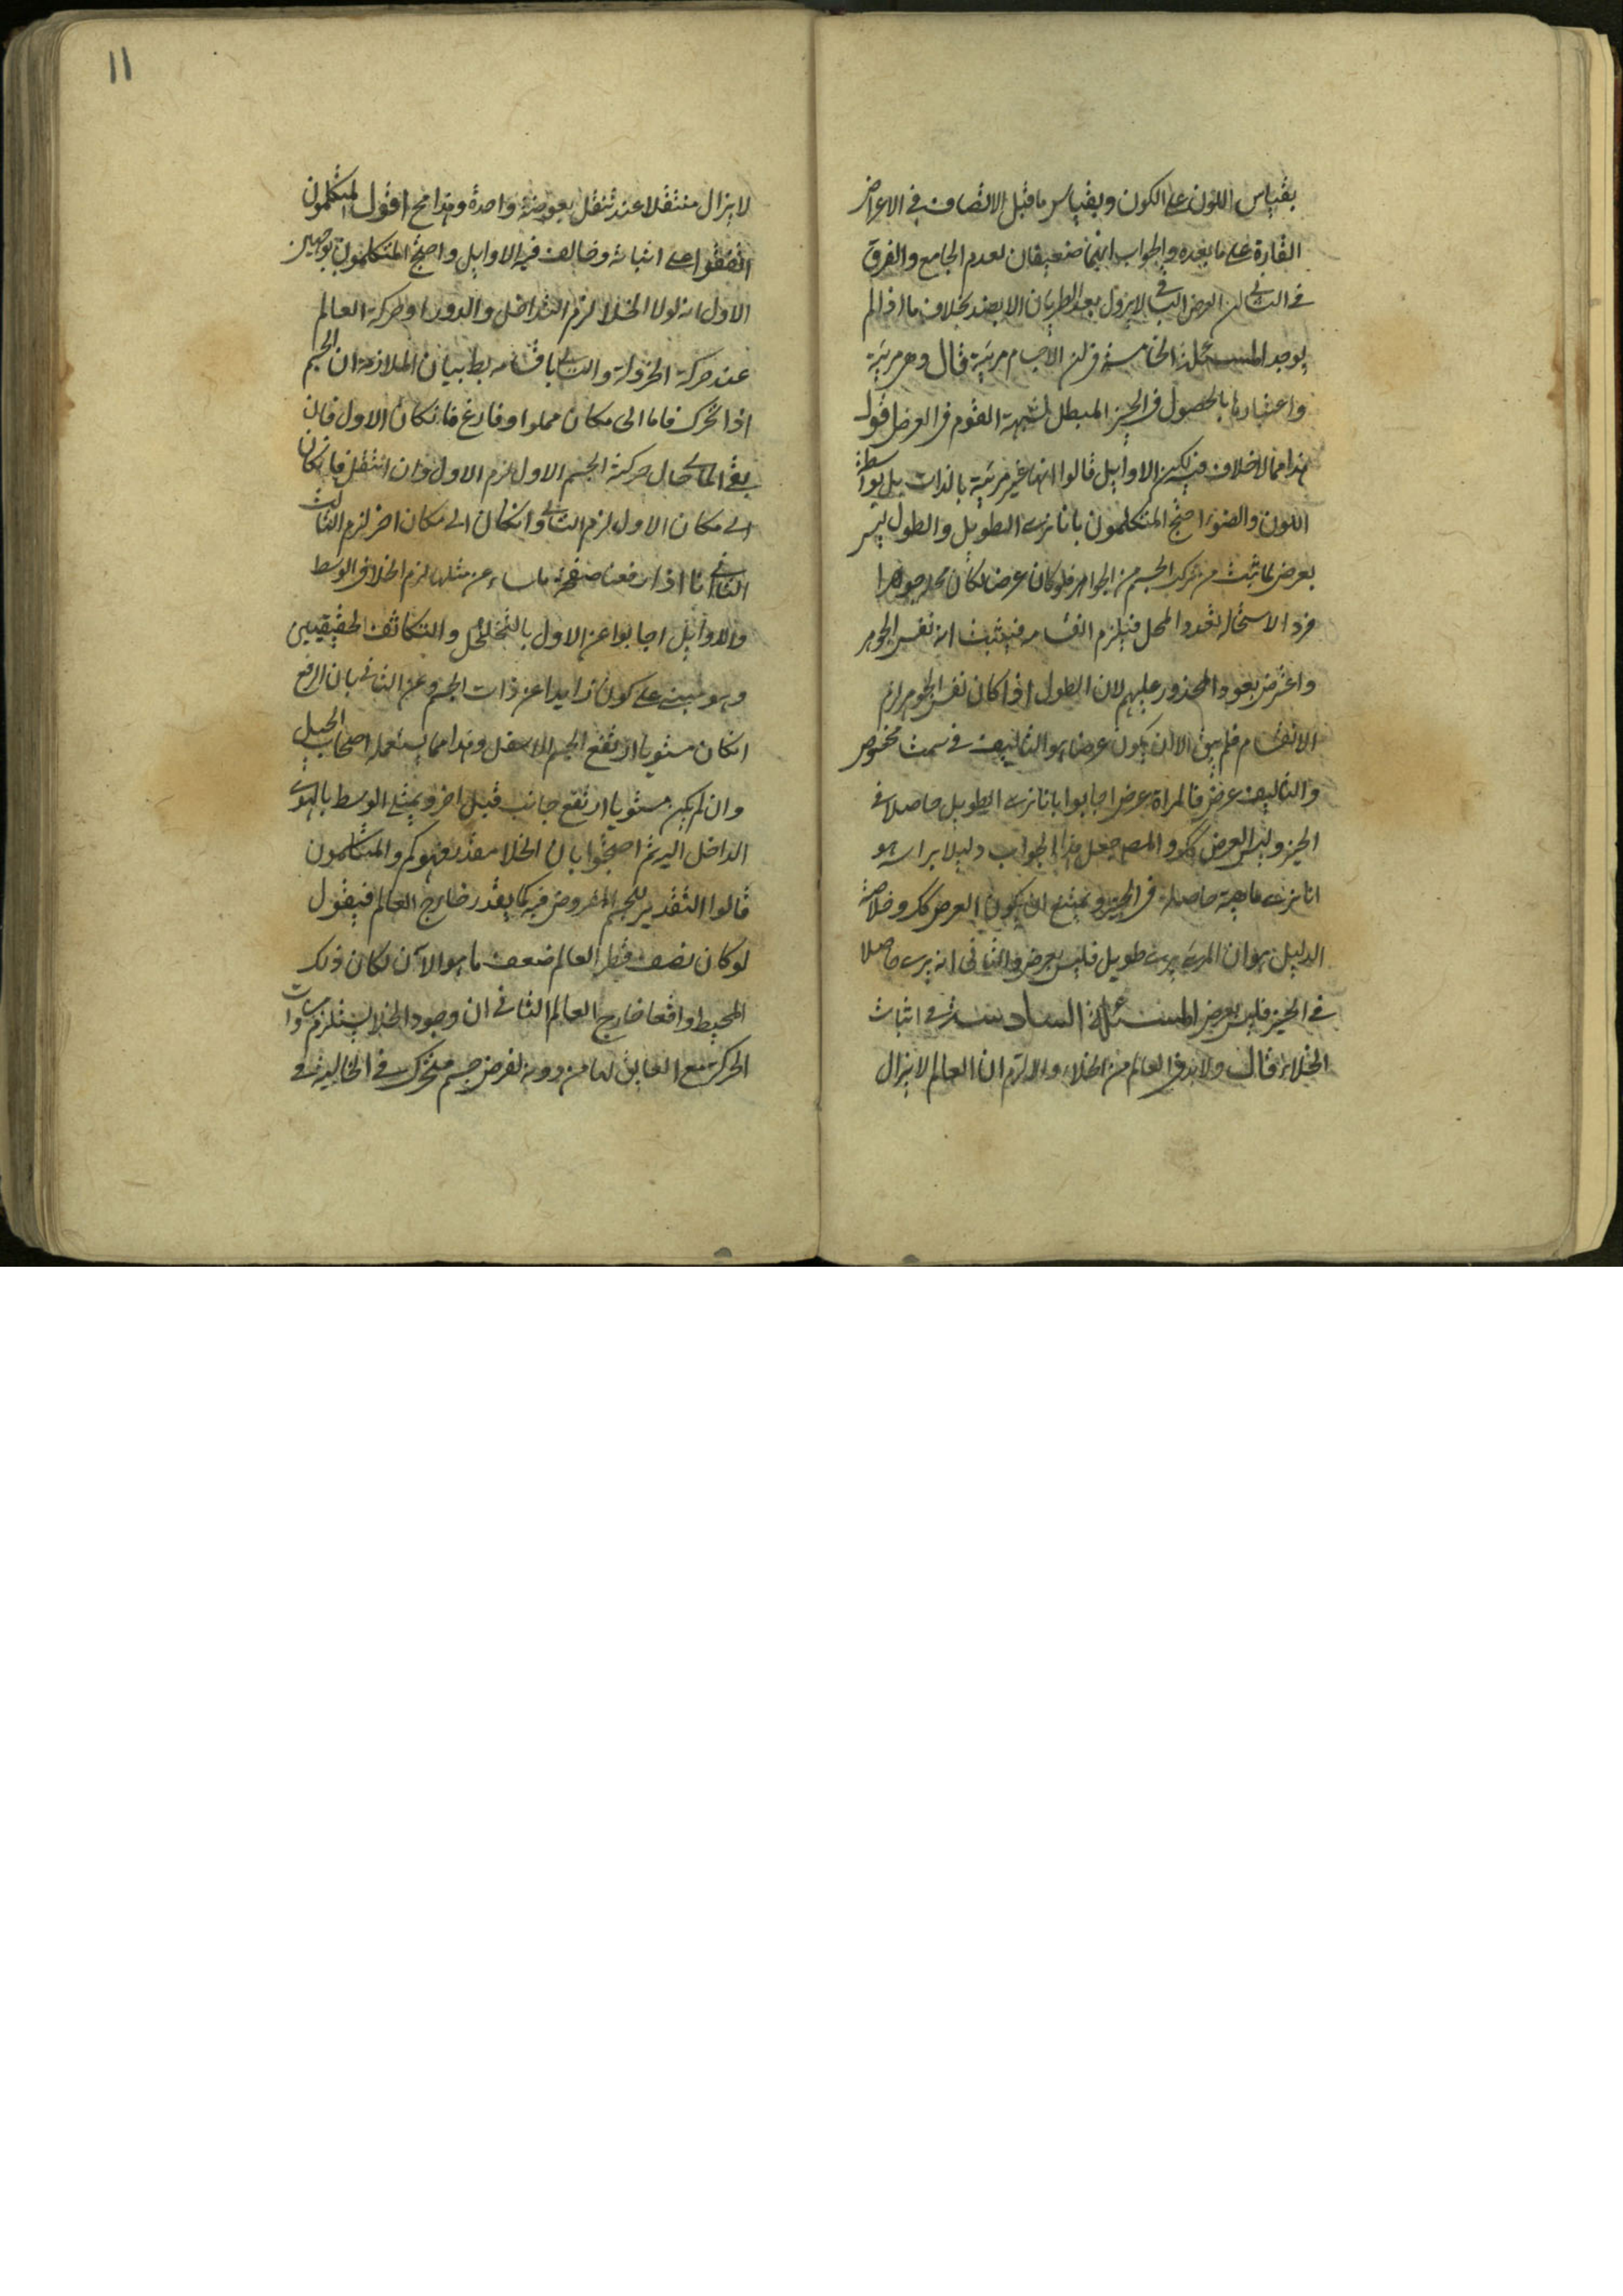 بقياس اللون على الكون وبقياس ما قبل الاتصاف في الاعراض
القارة على ما بعده والجواب انهما ضعيفان لعدم الجامع والفرق
في الثاني ان العرض الباقي لا يزول بعد الطريان الا بضد بخلاف ما اذا لم
يوجد المسئلة الخامسة في ان الاجسام مرئية قال وهي مرئية
واعتبارها بالحصول في الحيز المبطل لشبهة القوم في العرض اقول
هذا مما لا خلاف فيه لكن الاوايل قالوا انها غير مرئية بالذات بل بواسطة
اللون والضوء احتج المتكلمون بانا نرى الطويل والطول ليس
بعرض لما ثبت من تركب الجسم من الجواهر فلو كان عرضا لكان محله جوهرا
فردا لاستحالة تعدد المحل فيلزم انقسامه فيثبت انه نفس الجوهر
واعترض بعود المحذور عليهم لان الطول اذا كان نفس الجوهر لزم
الانقسام فلم يبق الا ان يكون عرضا هو التأليف في سمت مخصوص
والتأليف عرض فالمراة عرض اجابوا بانا نرى الطويل حاصلا في
الحيز وليس العرض كك والمص جعل هذا الجواب دليلا براسه هو
انا نرى ماهية حاصلة في الحيز ويمتنع ان يكون العرض كك وخلاصة
الدليل هو ان المرئي يرى طويل فليس بعرض والثاني انه يرى حاصلا
في الحيز فليس بعرض المسئلة السادسة في اثبات
الخلاء قال ولا بد في العالم من الخلاء والا لزم ان العالم لا يزال
١١
لا يزال منتقلا عند تنقل بعوضة واحدة وهذا مح اقول المتكلمون
اتفقوا على اثباته وخالف فيه الاوايل واحتج المتكلمون بوجهين
الاول انه لولا الخلا لزم التداخل والدور او حركة العالم
عند حركة الخردلة والتالي باقسامه بط بيان الملازمة ان الجسم
اذا تحرك فاما الى مكان مملوا وفارغ فان كان الاول فان
بقي المالي حال حركة الجسم الاول لزم الاول وان انتقل فان كان
الى مكان الاول لزم الثاني وان كان الى مكان اخر لزم الثالث
الثاني انا اذا رفعنا صفحة ملساء عن مثلها لزم الخلا في الوسط
والاوايل اجابوا عن الاول بالتخلخل والتكاثف الحقيقيين
وهو مبني على كون زايدا عن ذات الجسم وعن الثاني بان الرفع
ان كان مستويا ارتفع الجسم الاسفل وهذا مما يستعمله اصحاب الحيل
وان لم يكن مستويا ارتفع جانب قبل اخر ويمتلي الوسط بالهواء
الداخل اليه ثم احتجوا بان الخلا مقدر فهو كم والمتكلمون
قالوا التقدير للجسم المفروض فيه كما يقدر خارج العالم فيقول
لو كان نصف قطر العالم ضعف ما هو الآن لكان ذلك
المحيط واقعا خارج العالم الثاني ان وجود الخلا يستلزم مساواة
الحركة مع العايق لها من دونه لفرض جسم متحرك في الخالية في